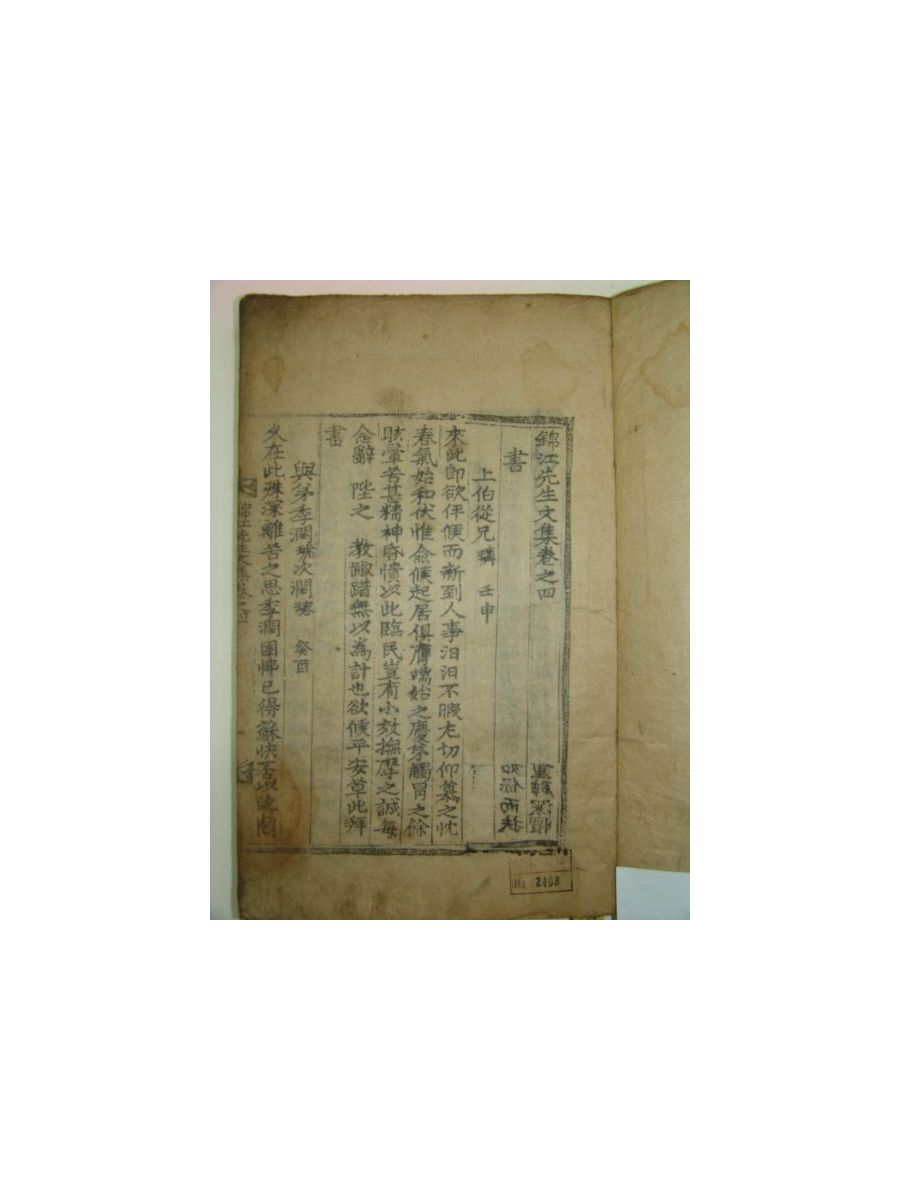 錦江先生文集卷之四
書
上伯從兄璘 壬申
來此卽欲伻候而新到人事汩汩不暇尤切仰慕之忱
春氣始和伏惟僉候起居俱膺端始之慶弟觸冒之餘
眩暈苦甚精神昏憒以此臨民豈有小效撫摩之誠每
念辭 陛之 教踧踖無以爲計也欲候平安草此拜
書
與弟季潤 次潤 癸酉
久在此殊深離苦之思季潤困悴已得蘇快否以晩
錦江先生文集卷之四
No. 2408